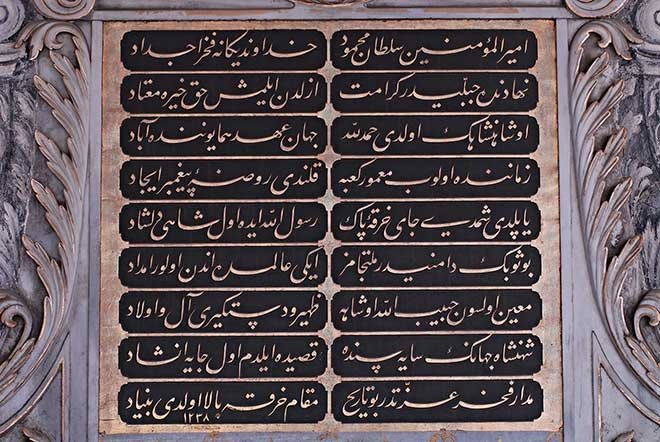 امیر المؤمنین سلطان محمود
خداوند یکانه فخر اجداد
نهادنده جبلیدر کرامت
ازلدن ایلمش حق خیره معتاد
او شاهنشاهک اولدی حمدلله
جهان عهد همایوننده آباد
زماننده اولوب معمور کعبه
قلندی روضهٔ پیغمبر ایجاد
یاپلدی شمدی جای خرقهٔ پاک
رسول الله ایده اول شاهی دلشاد
بو ثوبک دامنیدر ملتجامز
ایکی عالمده اندن اولور امداد
معین اولسون حبیب الله او شاهه
ظهیر و دستگیری آل و اولاد
شهنشاه جهانک سایه سنده
قصیده ایلدم اول جایه انشاد
مدار فخر عزتدر بو تاریخ
مقام خرقه بالا اولدی بنیاد
١٢٣٨